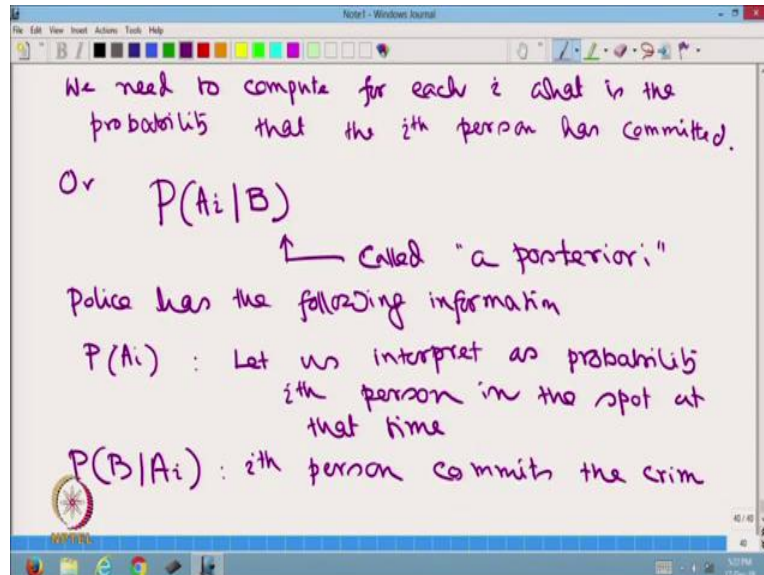 Note1 - Windows Journal
File Edit View Insert Actions Tools Help
B I
We need to compute for each i what is the
probability that the ith person has committed.
Or P(Ai|B)
called "a posteriori"
Police has the following information
P(Ai) : Let us interpret as probability
ith person in the spot at
that time
P(B|Ai) : ith person commits the crim
NPTEL
40/40
40
5:22 PM